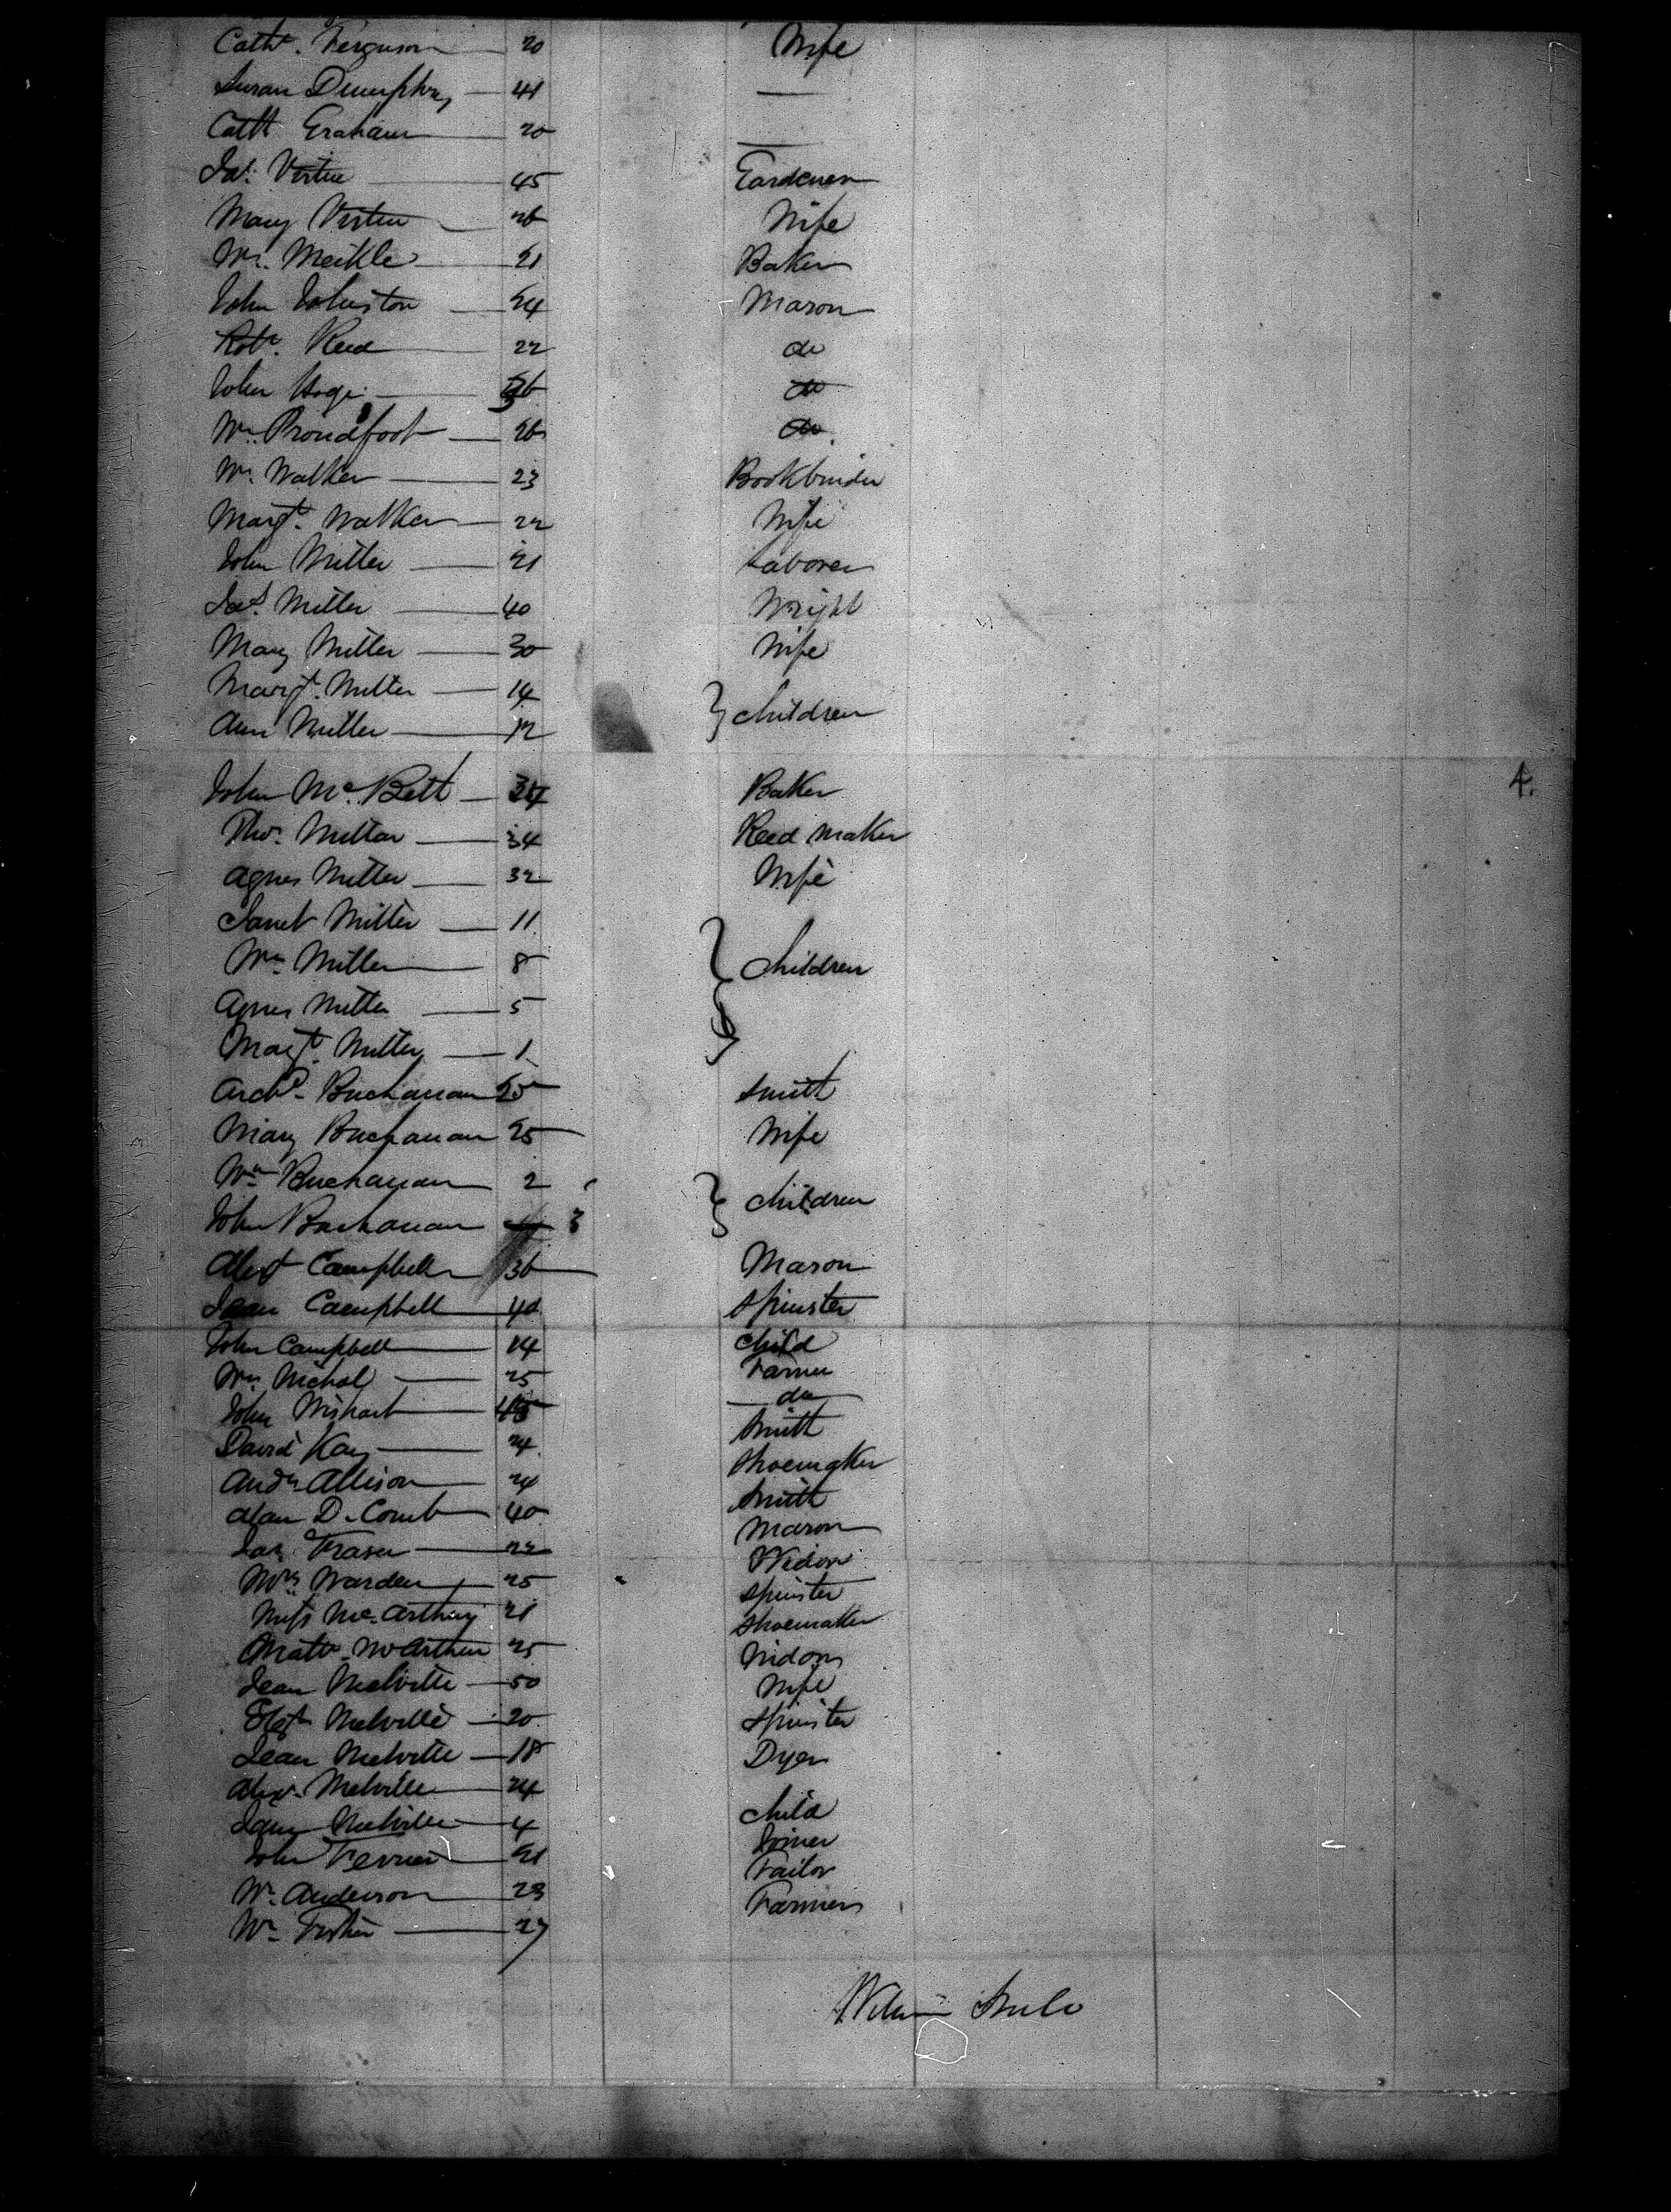 Cath. Ferguson 20 Wife
Susan Dumphrey 41 —
Cath Graham 20 —
Jas. Vertue 45 Gardener
Mary Vertue 26 Wife
Wm. Meikle 21 Baker
John Johnston 24 Mason
Robt. Reed 22 do
John Hogi do
Wm. Proudfoot 26 do
Wm. Walker 23 Bookbinder
Margt. Walker 22 Wife
John Miller 21 Laborer
Jas. Miller 40 Wright
Mary Miller 30 Wife
Margt. Miller 14
Ann Miller 12 } children
John Mc. Bett Baker
4.
Thos. Millar 34 Reed maker
Agnes Miller 32 Wife
Janet Miller 11
Wm. Miller 8 } children
Agnes Miller 5
Margt. Miller 1
Archd. Buchanan 25 Smith
Mary Buchanan 25 Wife
Wm Buchanan 2 } children
John Buchanan 3
Alext Campbell 36 Mason
Jean Campbell 40 Spinster
John Campbell 14 child
Wm. Nichol 25 Farmer
John Wishart 45 do
David Kay 24 Smith
Andw Allison 24 Shoemaker
Alan D. Comb 40 Smith
Jas. Fraser 22 Mason
Mrs. Warden 25 Widow
Miss Mc. Arthur 21 Spinster
Matw. McArthur 25 Shoemaker
Jean Melville 50 Widow
Elizth Melville 20 Wife
Jean Melville 18 Spinster
Alexr. Melville 24 Dyer
Melville 4 child
John 21 Joiner
Wm. Anderson 23 Tailor
Wm. 27 Farmer
William